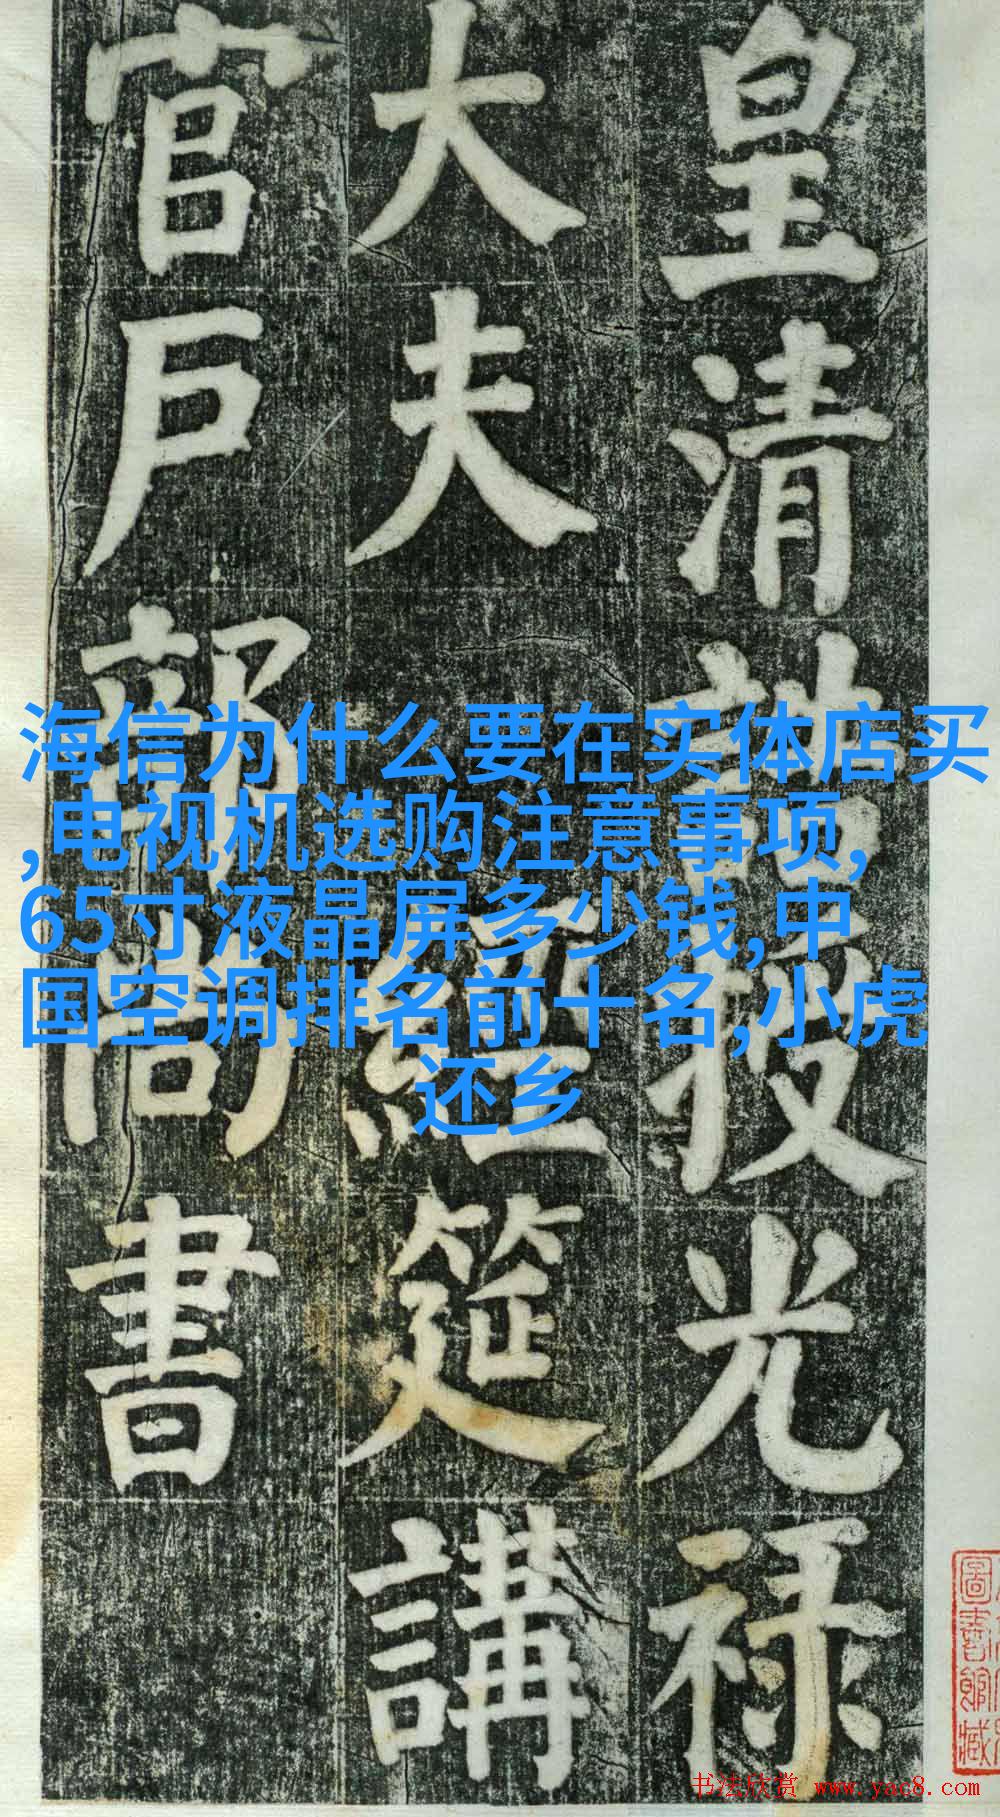 皇清誥授光祿
大夫 經筵講
官戶部尚書
海信为什么要在实体店买
,电视机选购注意事项,
65寸液晶屏多少钱,中
国空调排名前十名,小虎
还乡
圖書館藏
书法欣赏 www.yac8.com